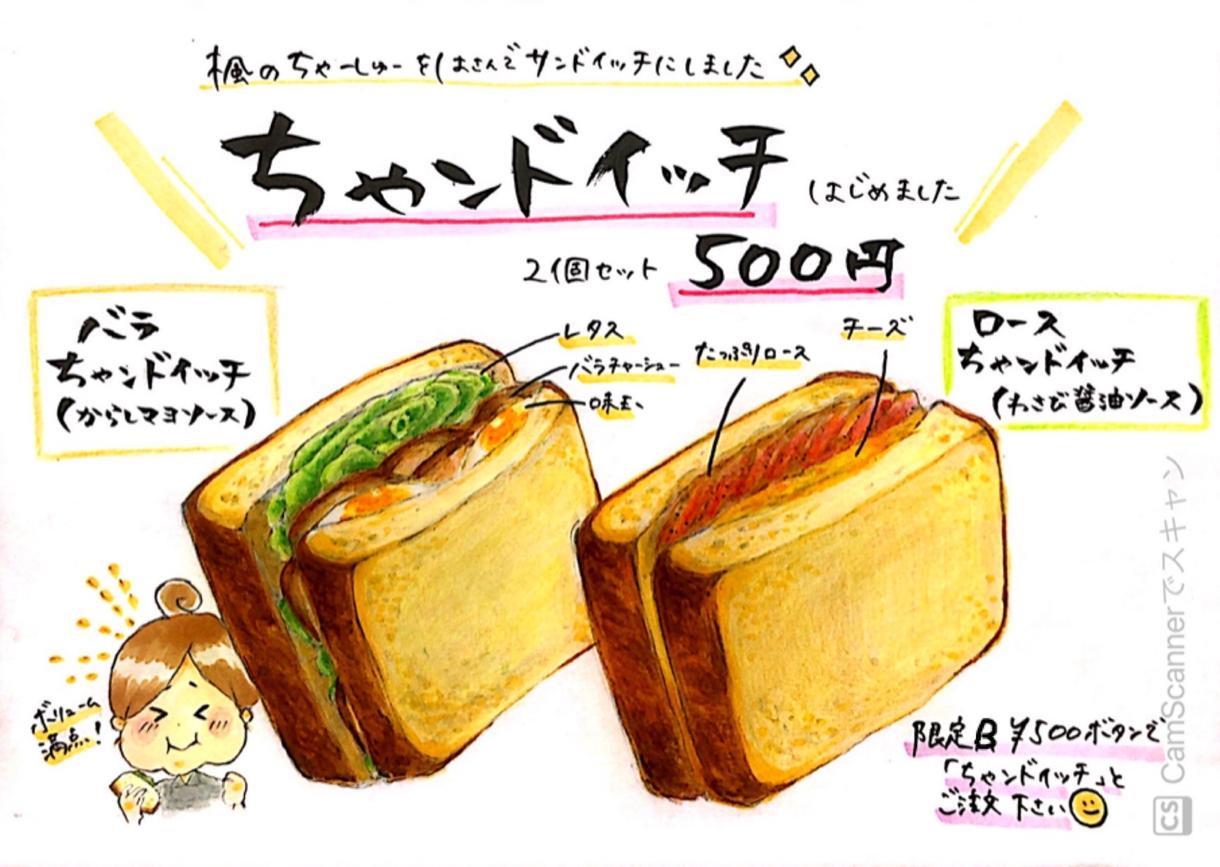 楓のちゃーしゅーをはさんでサンドイッチにしました
ちゃンドイッチ はじめました
2個セット 500円
バラ
ちゃンドイッチ
(からしマヨソース)
レタス
バラチャーシュー
味玉
たっぷりロース
チーズ
ロース
ちゃンドイッチ
(わさび醤油ソース)
ボリューム
満点!
限定B ¥500ボタンで
「ちゃンドイッチ」と
ご注文下さい
CS CamScannerでスキャン